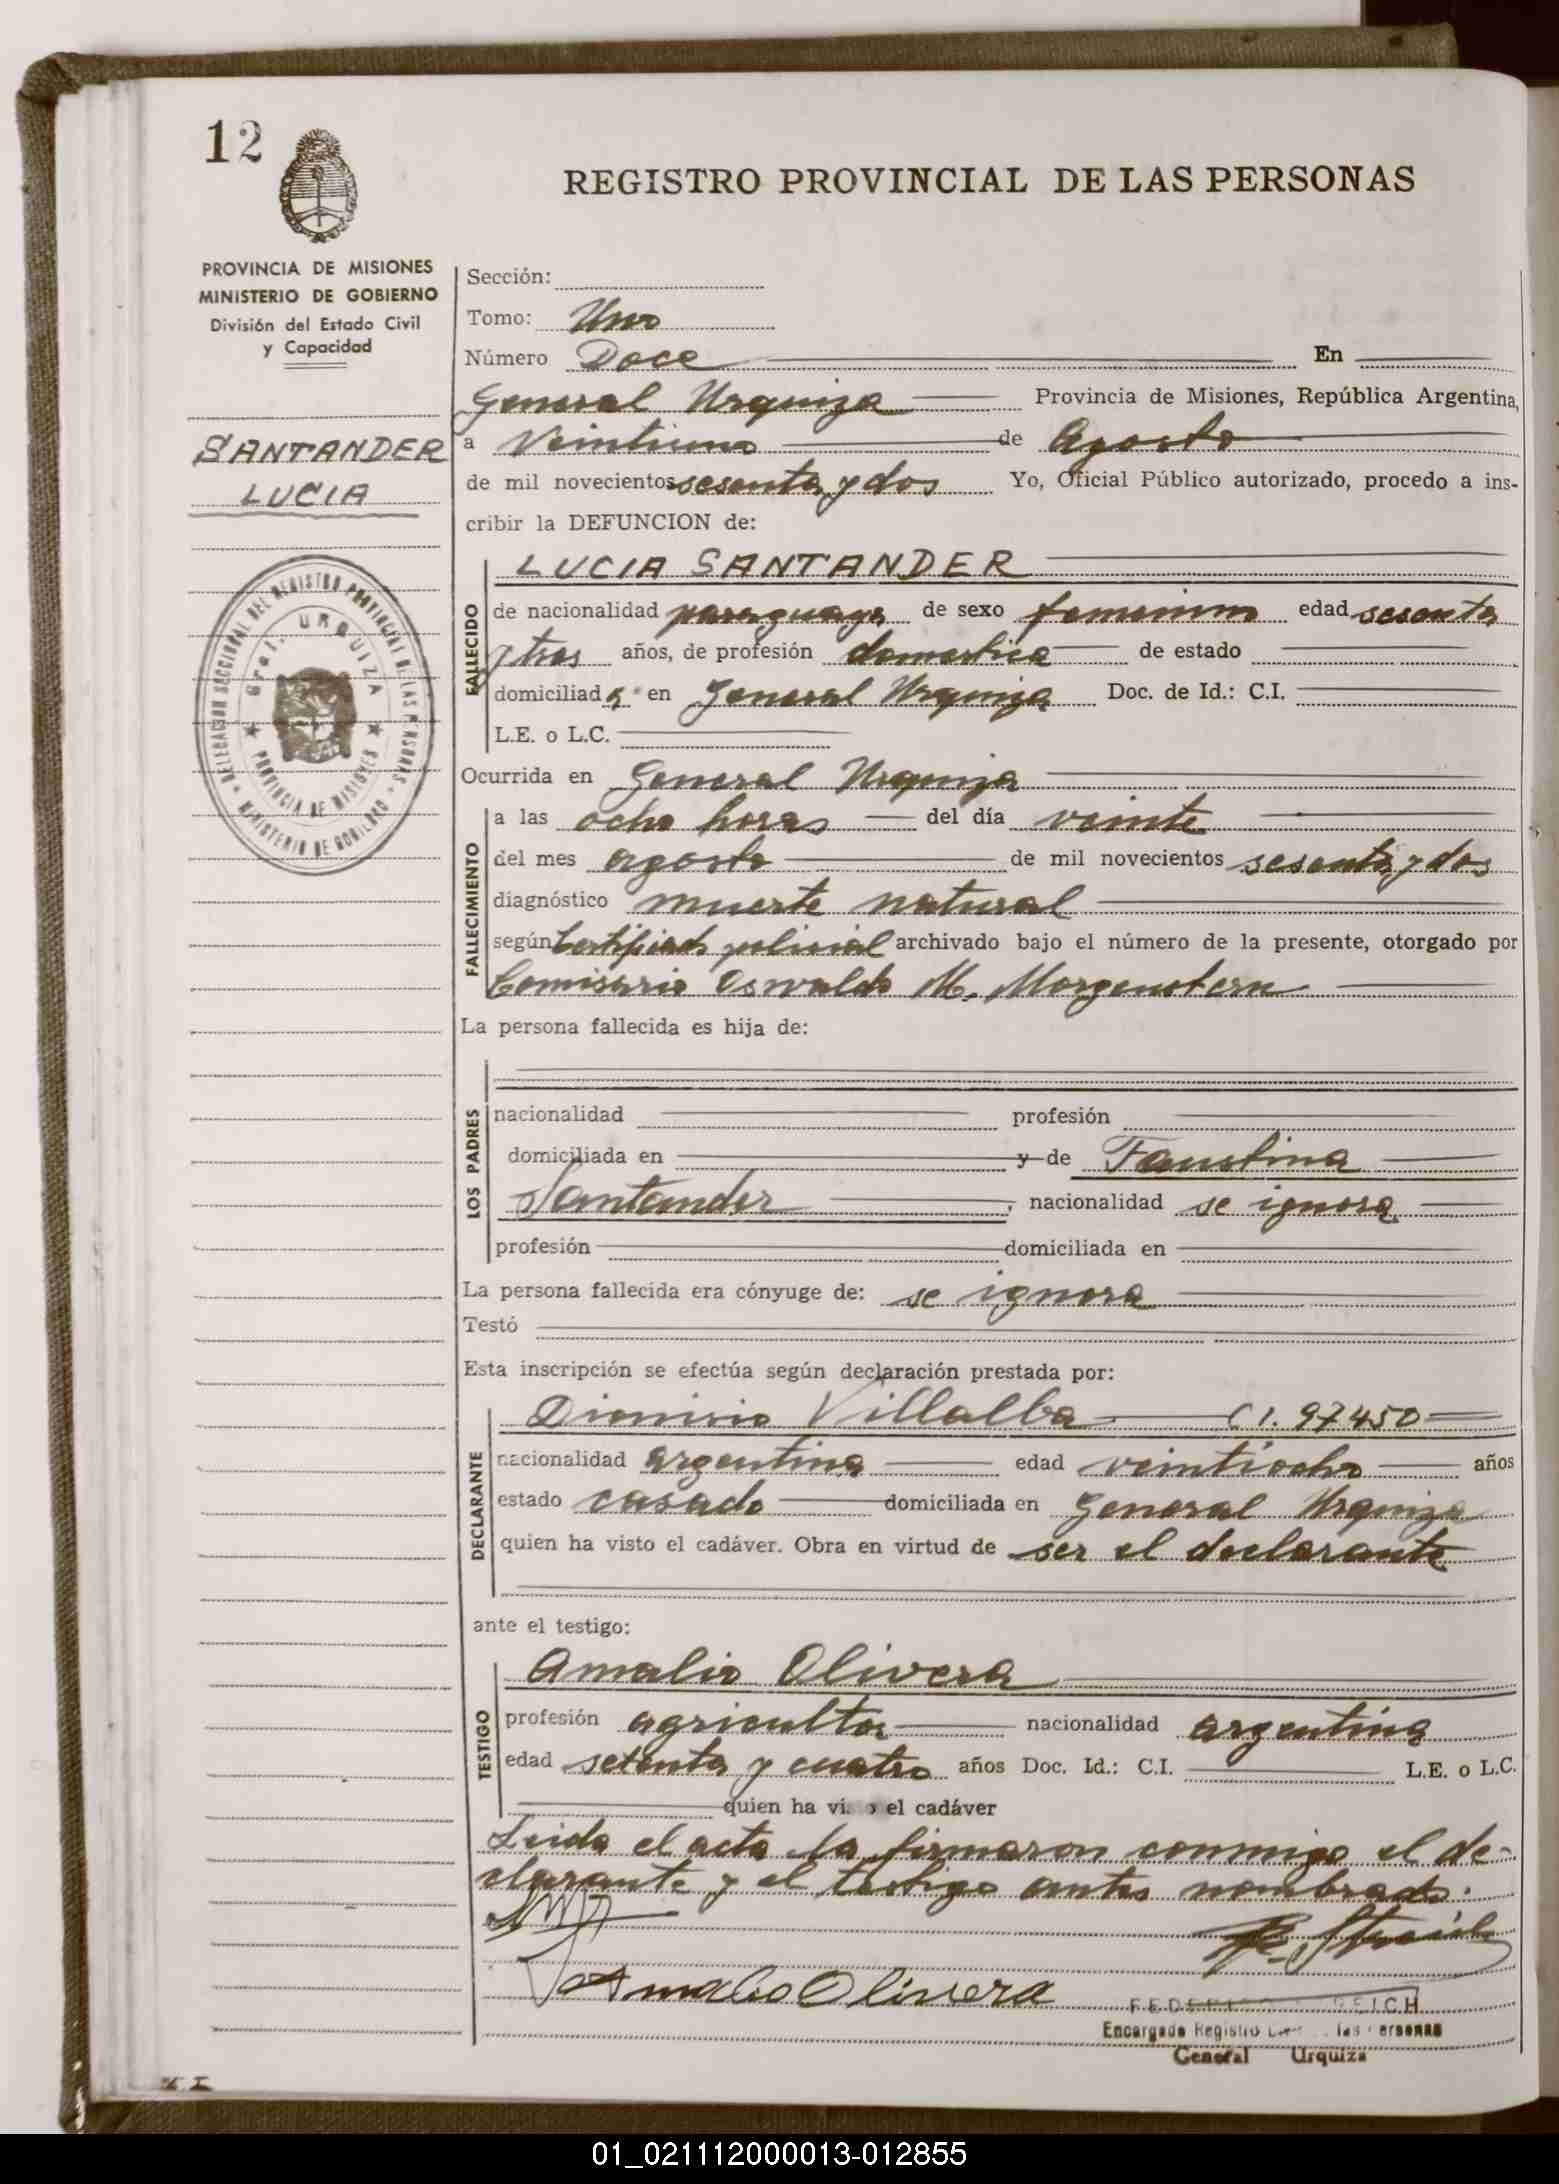 12
REGISTRO PROVINCIAL DE LAS PERSONAS
PROVINCIA DE MISIONES
MINISTERIO DE GOBIERNO
División del Estado Civil
y Capacidad
SANTANDER
LUCIA
DELEGACION SECCIONAL DEL REGISTRO PROVINCIAL DE LAS PERSONAS
Gral. URQUIZA
PROVINCIA DE MISIONES
MINISTERIO DE GOBIERNO
Sección:
Tomo: Uno
Número Doce En
General Urquiza Provincia de Misiones, República Argentina,
a Veintiuno de Agosto
de mil novecientos sesenta y dos Yo, Oficial Público autorizado, procedo a ins-
cribir la DEFUNCION de:
FALLECIDO
LUCIA SANTANDER
de nacionalidad paraguaya de sexo femenino edad sesenta
y tres años, de profesión domestica de estado
domiciliada en General Urquiza Doc. de Id.: C.I.
L.E. o L.C.
Ocurrida en General Urquiza
FALLECIMIENTO
a las ocho horas del día veinte
del mes agosto de mil novecientos sesenta y dos
diagnóstico muerte natural
según Certificado policial archivado bajo el número de la presente, otorgado por
Comisario Oswaldo M. Morgenstern
La persona fallecida es hija de:
LOS PADRES
nacionalidad profesión
domiciliada en y de Faustina
Santander, nacionalidad se ignora
profesión domiciliada en
La persona fallecida era cónyuge de: se ignora
Testó
Esta inscripción se efectúa según declaración prestada por:
DECLARANTE
Dionisio Villalba C.I. 97450
nacionalidad argentina edad veintiocho años
estado casado domiciliada en General Urquiza
quien ha visto el cadáver. Obra en virtud de ser el declarante
ante el testigo:
TESTIGO
Amalio Olivera
profesión agricultor nacionalidad argentina
edad setenta y cuatro años Doc. Id.: C.I. L.E. o L.C.
quien ha visto el cadáver
Leida el acta la firmaron conmigo el de-
clarante y el testigo antes nombrado.
Amalio Olivera
Encargado Registro las Personas
General Urquiza
01_021112000013-012855